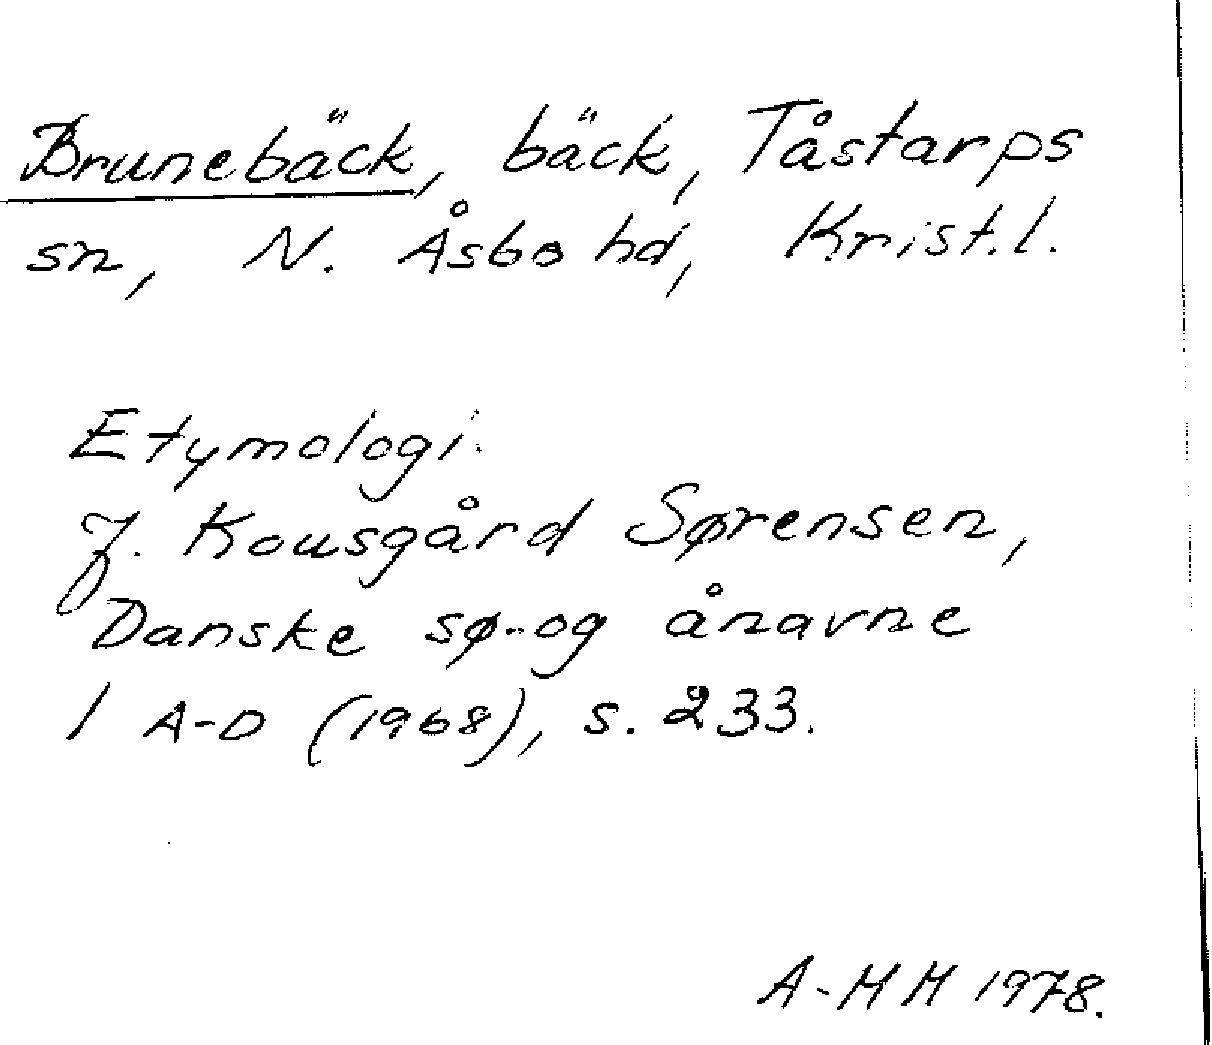 Brunebäck, bäck, Tåstarps
sn, N. Åsbo hd, Krist.l.
Etymologi.
J. Kousgård Sørensen,
Danske sø- og ånavne
I A-D (1968), s. 233.
A-MM 1978.